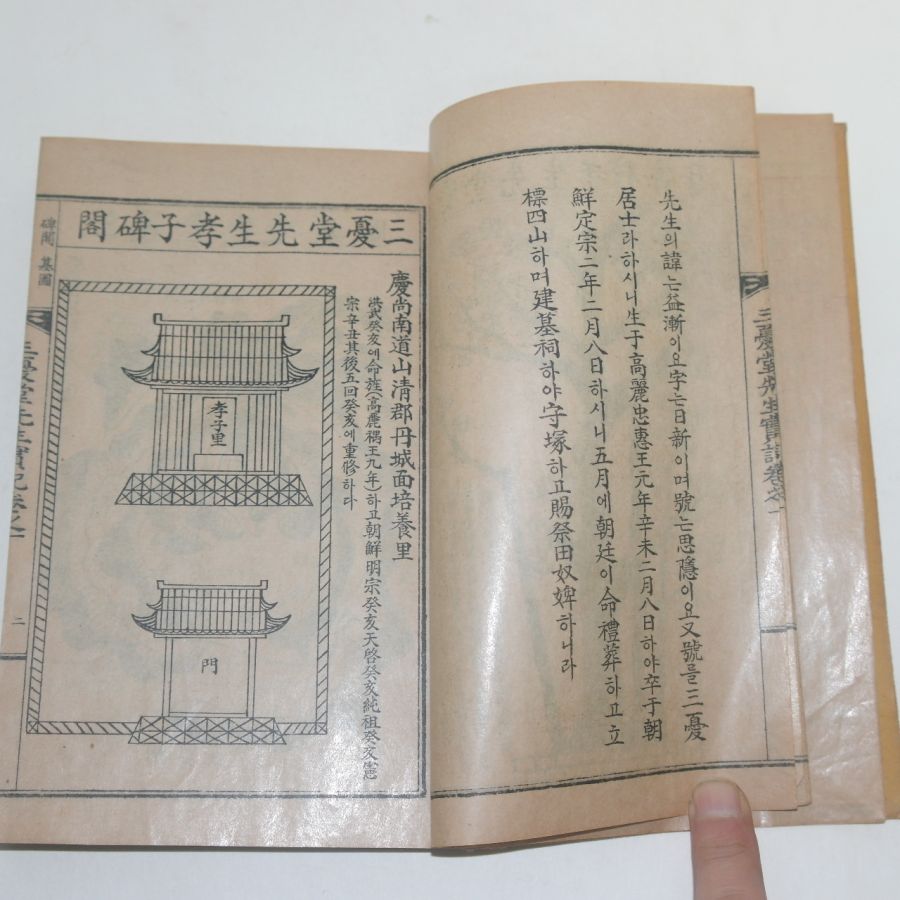 先生의諱는益漸이요字는日新이며號는思隱이요又號를三憂
居士라하시니生于高麗忠惠王元年辛未二月八日하야卒于朝
鮮定宗二年二月八日하시니五月에朝廷이命禮葬하고立
標四山하며建墓祠하야守塚하고賜祭田奴婢하니라
三憂堂先生實記卷之一
三憂堂先生孝子碑閣
慶尙南道山清郡丹城面培養里
洪武癸亥에命旌(高麗禑王九年)하고朝鮮明宗癸亥天啓癸亥純祖癸亥憲
宗辛丑其後五回癸亥에重修하다
孝子里
門
碑閣 墓圖
三憂堂先生實記卷之一
二